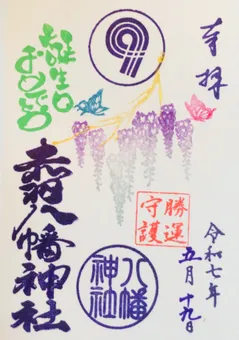 奉拝
令和七年
五月十九日
勝運
守護
誕生日
おめでとう
赤羽八幡神社
八幡
神社